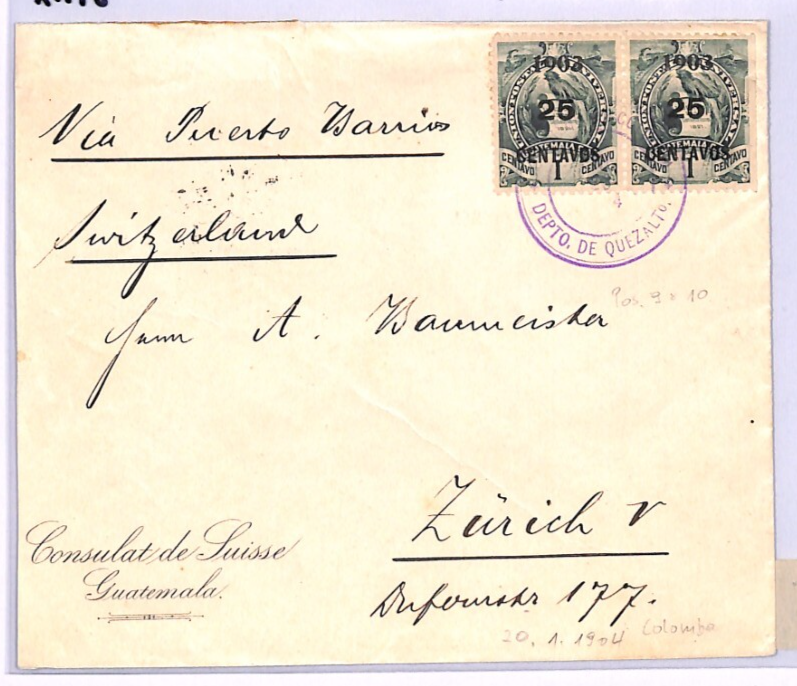 Via Puerto Barrios
Switzerland
Herrn A. Baumeister
Zürich V
Dufourstr 177.
Consulat de Suisse
Guatemala.
1903 1903
25 25
CENTAVOS CENTAVOS
CENTAVO 1 CENTAVO CENTAVO 1 CENTAVO
DEPTO. DE QUEZALTO.
Pos. 9 + 10
20. 1. 1904 Colomba